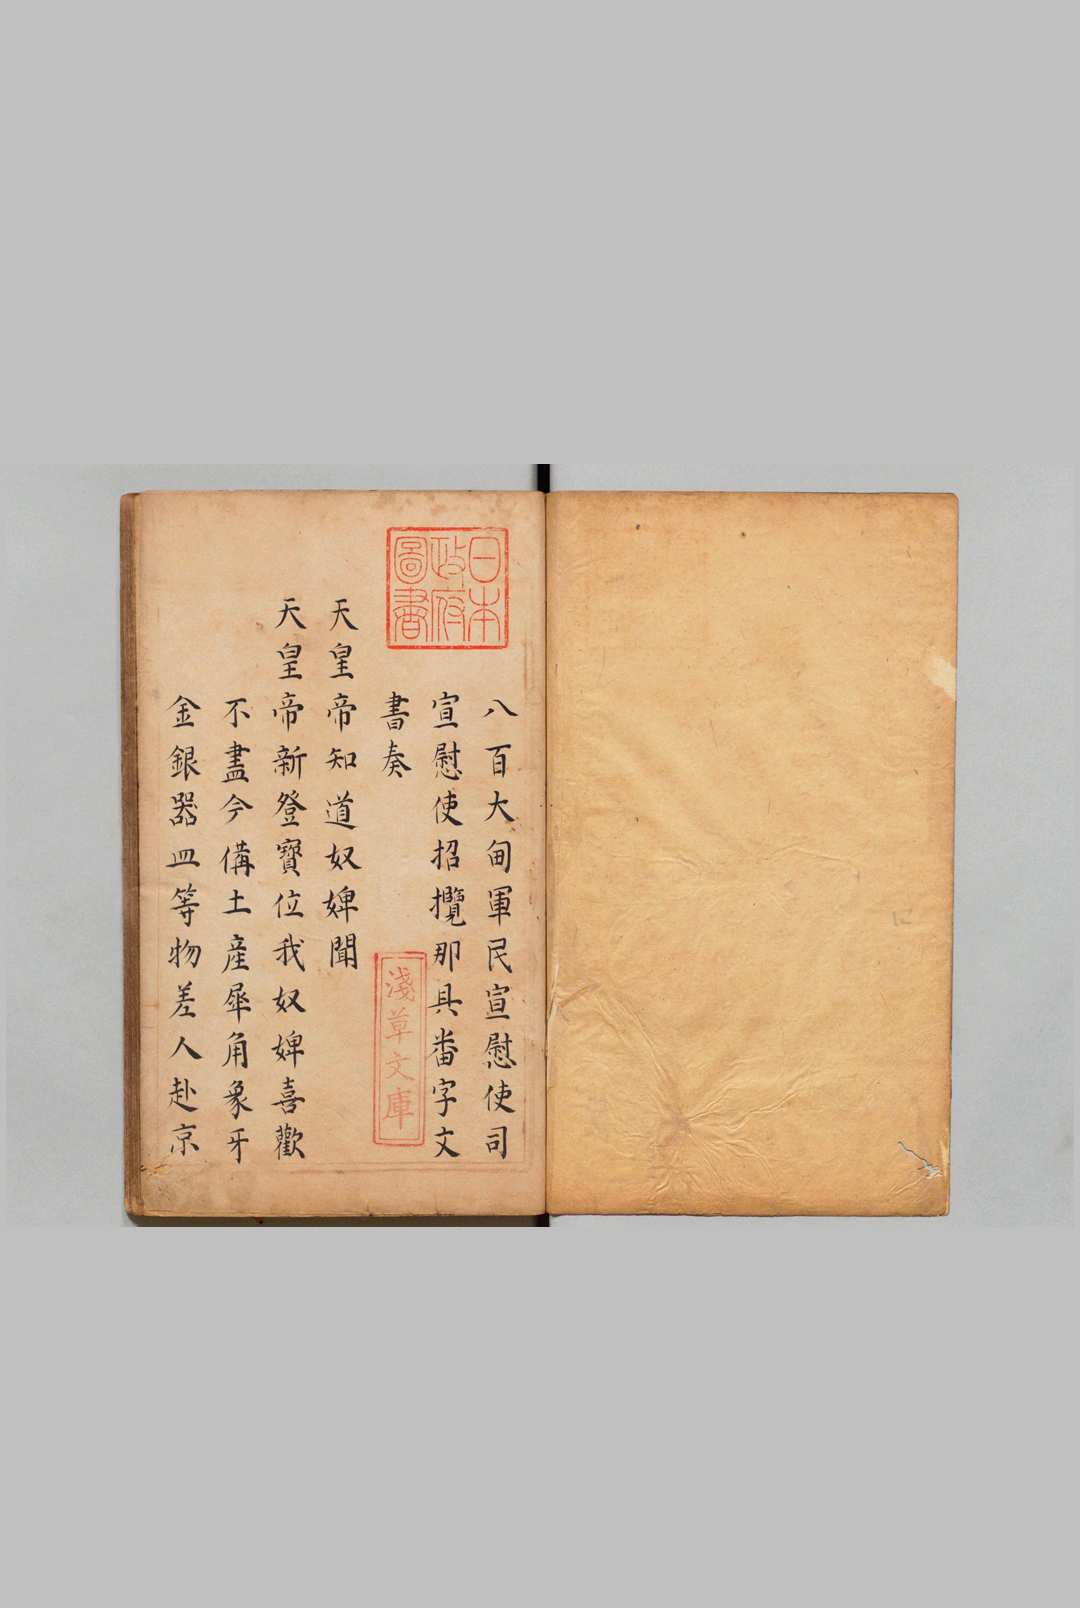 八百大甸軍民宣慰使司
宣慰使招攬那具番字文
書奏
天皇帝知道奴婢聞
天皇帝新登寶位我奴婢喜歡
不盡今俻土産犀角象牙
金銀器皿等物差人赴京
日本
政府
圖書
淺草文庫